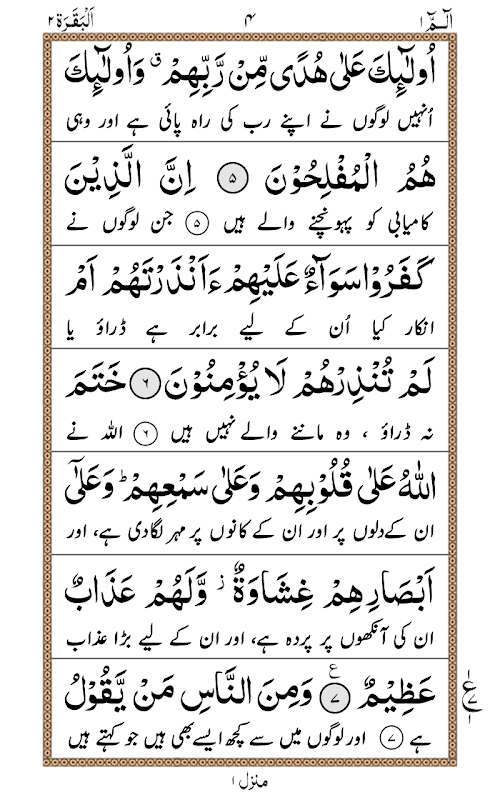 الٓـمّٓ ۱ ۴ اَلْبَقَرَة ۲
اُولٰٓئِكَ عَلٰى هُدًى مِّنْ رَّبِّهِمْ ۗ وَاُولٰٓئِكَ
اُنہیں لوگوں نے اپنے رب کی راہ پائی ہے اور وہی
هُمُ الْمُفْلِحُوْنَ ۝۵ اِنَّ الَّذِيْنَ
کامیابی کو پہونچنے والے ہیں ۝۵ جن لوگوں نے
كَفَرُوْا سَوَآءٌ عَلَيْهِمْ ءَاَنْذَرْتَهُمْ اَمْ
انکار کیا اُن کے لیے برابر ہے ڈراؤ یا
لَمْ تُنْذِرْهُمْ لَا يُؤْمِنُوْنَ ۝۶ خَتَمَ
نہ ڈراؤ ، وہ ماننے والے نہیں ہیں ۝۶ اللہ نے
اللّٰهُ عَلٰى قُلُوْبِهِمْ وَعَلٰى سَمْعِهِمْ ؕ وَعَلٰٓى
ان کے دلوں پر اور ان کے کانوں پر مہر لگادی ہے، اور
اَبْصَارِهِمْ غِشَاوَةٌ ز وَّلَهُمْ عَذَابٌ
ان کی آنکھوں پر پردہ ہے، اور ان کے لیے بڑا عذاب
عَظِيْمٌ ۝۷ ع وَمِنَ النَّاسِ مَنْ يَّقُوْلُ
ہے ۝۷ اور لوگوں میں سے کچھ ایسے بھی ہیں جو کہتے ہیں
منزل ۱